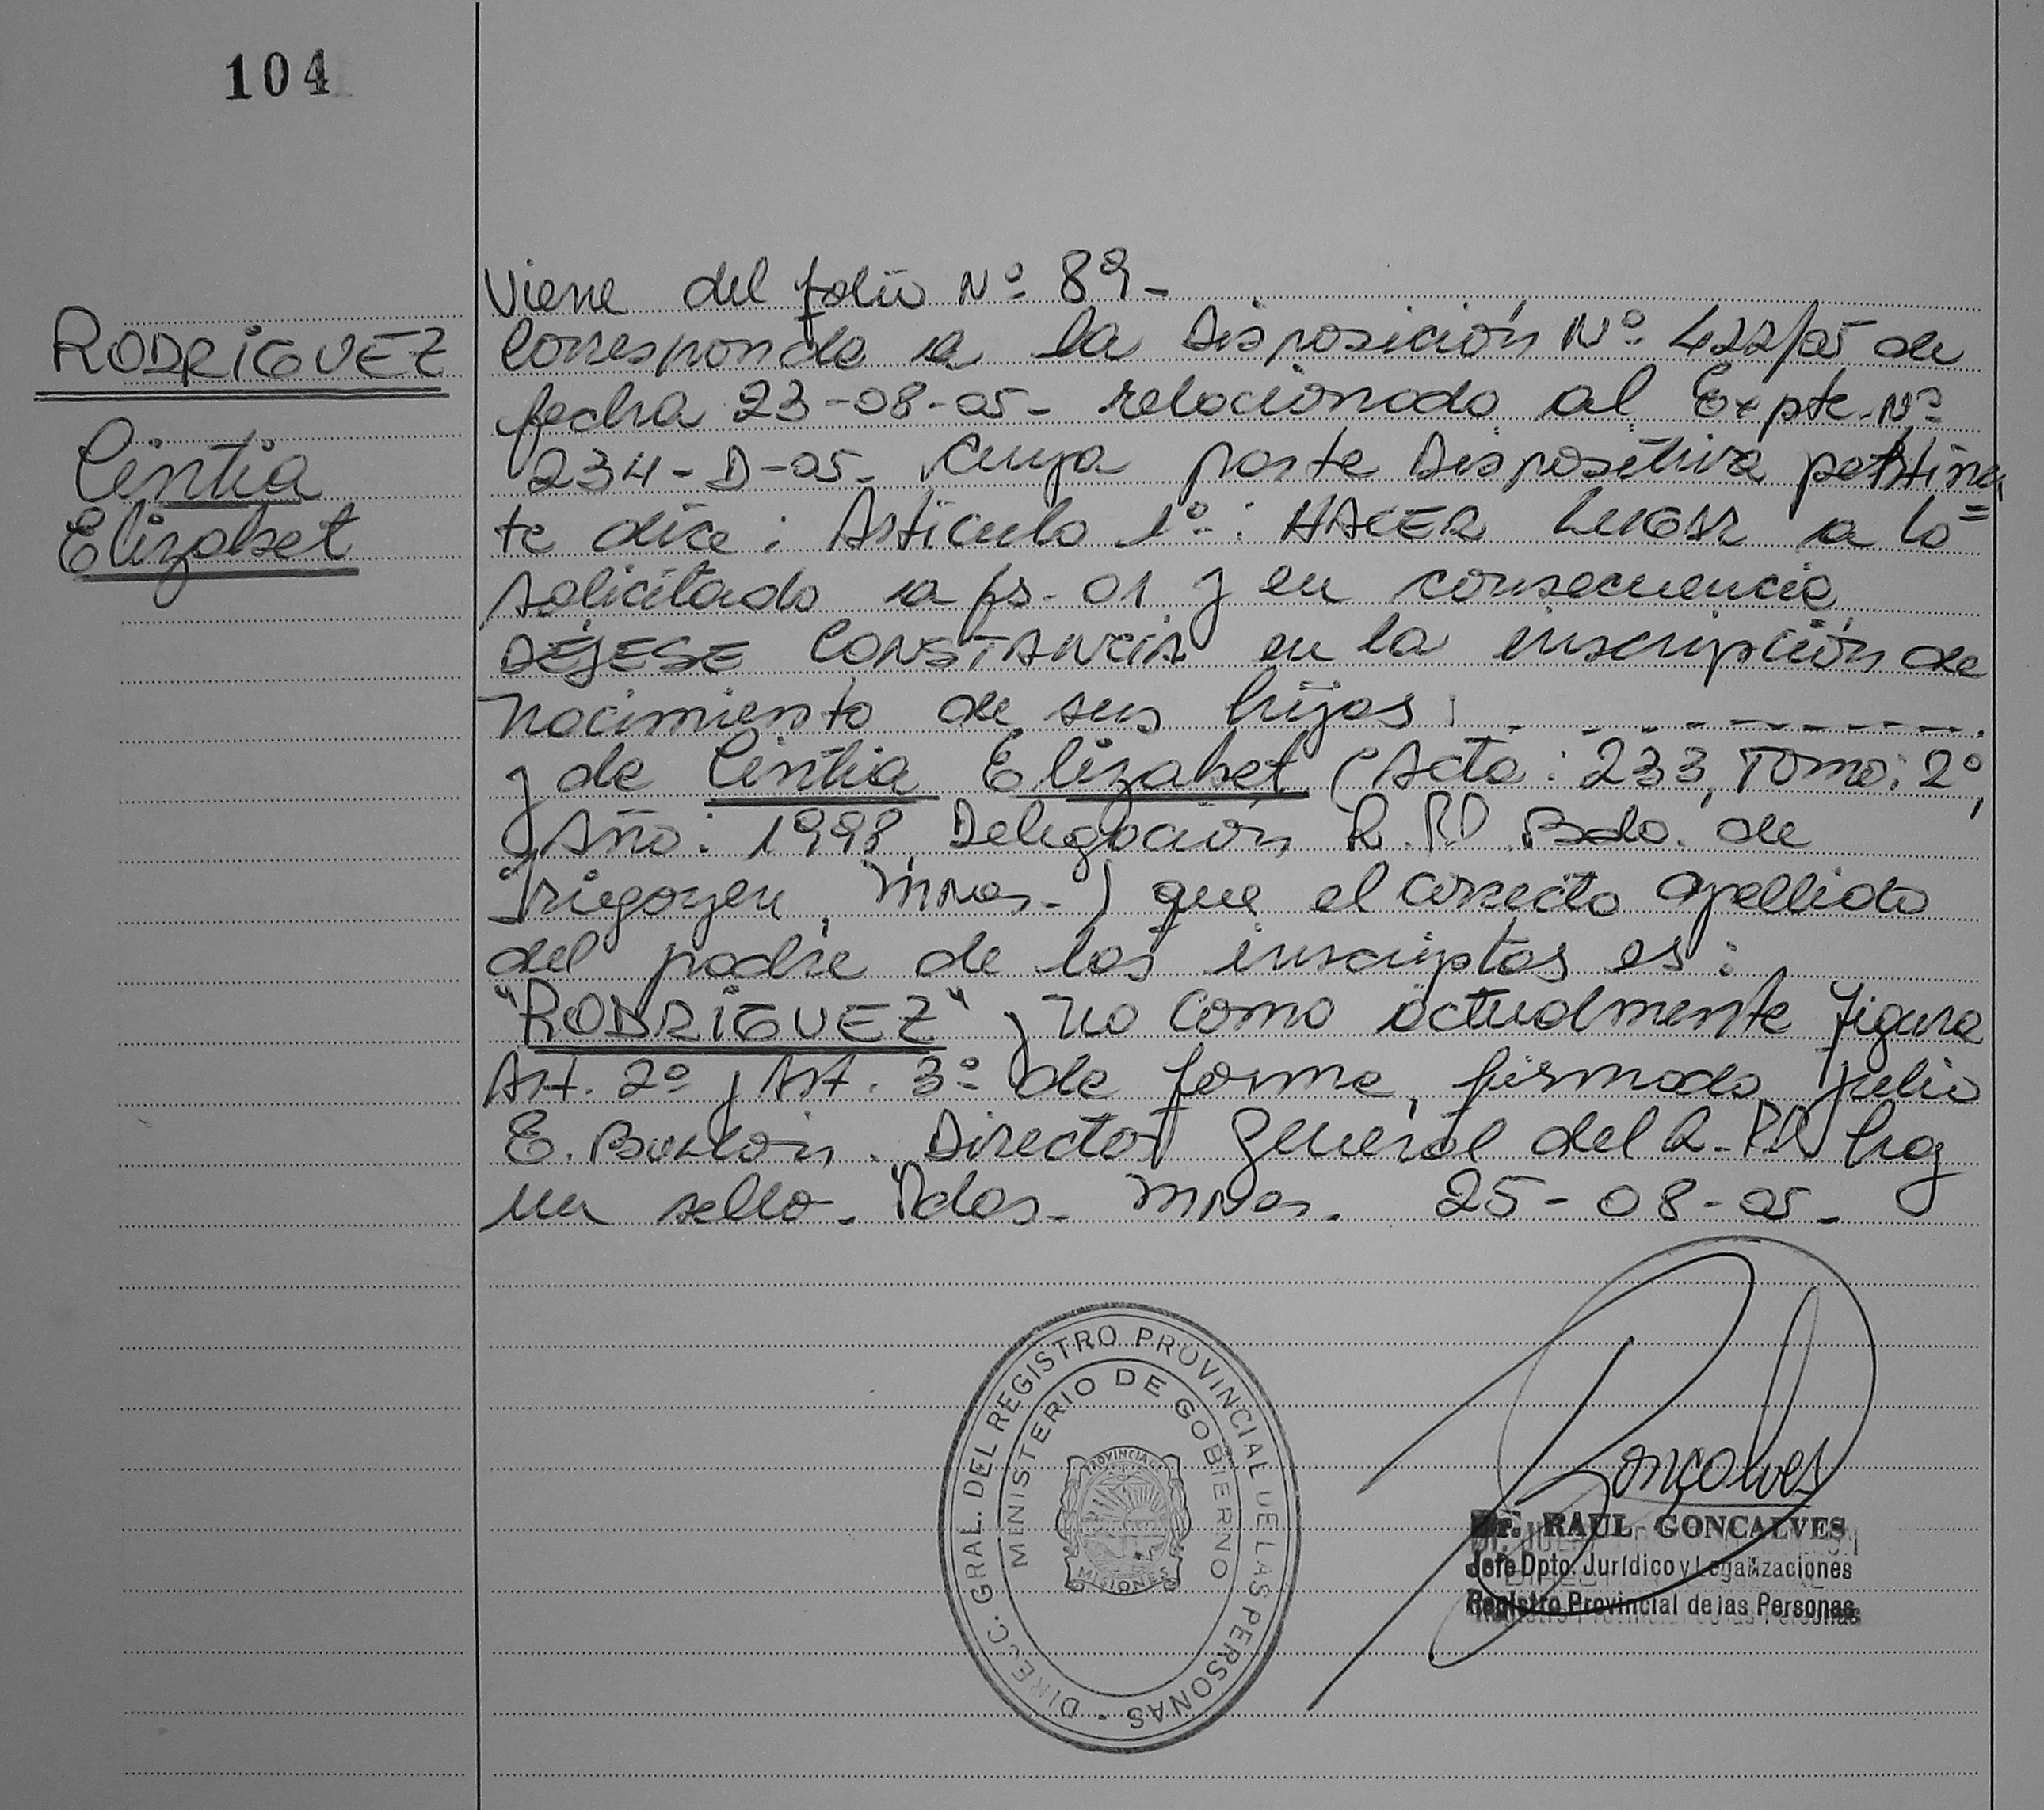 104
RODRÍGUEZ
Cintia
Elizabet
Viene del folio Nº 89-
Corresponde a la Disposición Nº 422/05 de
fecha 23-08-05- relacionado al Expte. Nº
234-D-05- Cuya parte Dispositiva pertinen
te dice: Artículo 1º: HACER LUGAR a lo=
solicitado a fs. 01 y en consecuencia
DÉJESE CONSTANCIA en la inscripción de
nacimiento de sus hijos:
y de Cintia Elizabet (Acta: 233, Tomo: 2º,
Año: 1998, Delegación R.PP Bdo. de
Irigoyen, Mnes.) que el correcto apellido
del padre de los inscriptos es:
"RODRÍGUEZ" y no como actualmente figura
Art. 2º y Art. 3º de forma, firmado Julio
E. Director General del R.PP hay
un sello. Pdas. Mnes. 25-08-05-
DIRECC. GRAL. DEL REGISTRO PROVINCIAL DE LAS PERSONAS -
MINISTERIO DE GOBIERNO
PROVINCIA DE
MISIONES
Goncalves
Dr. RAUL GONCALVES
Jefe Dpto. Jurídico y Legalizaciones
Registro Provincial de las Personas